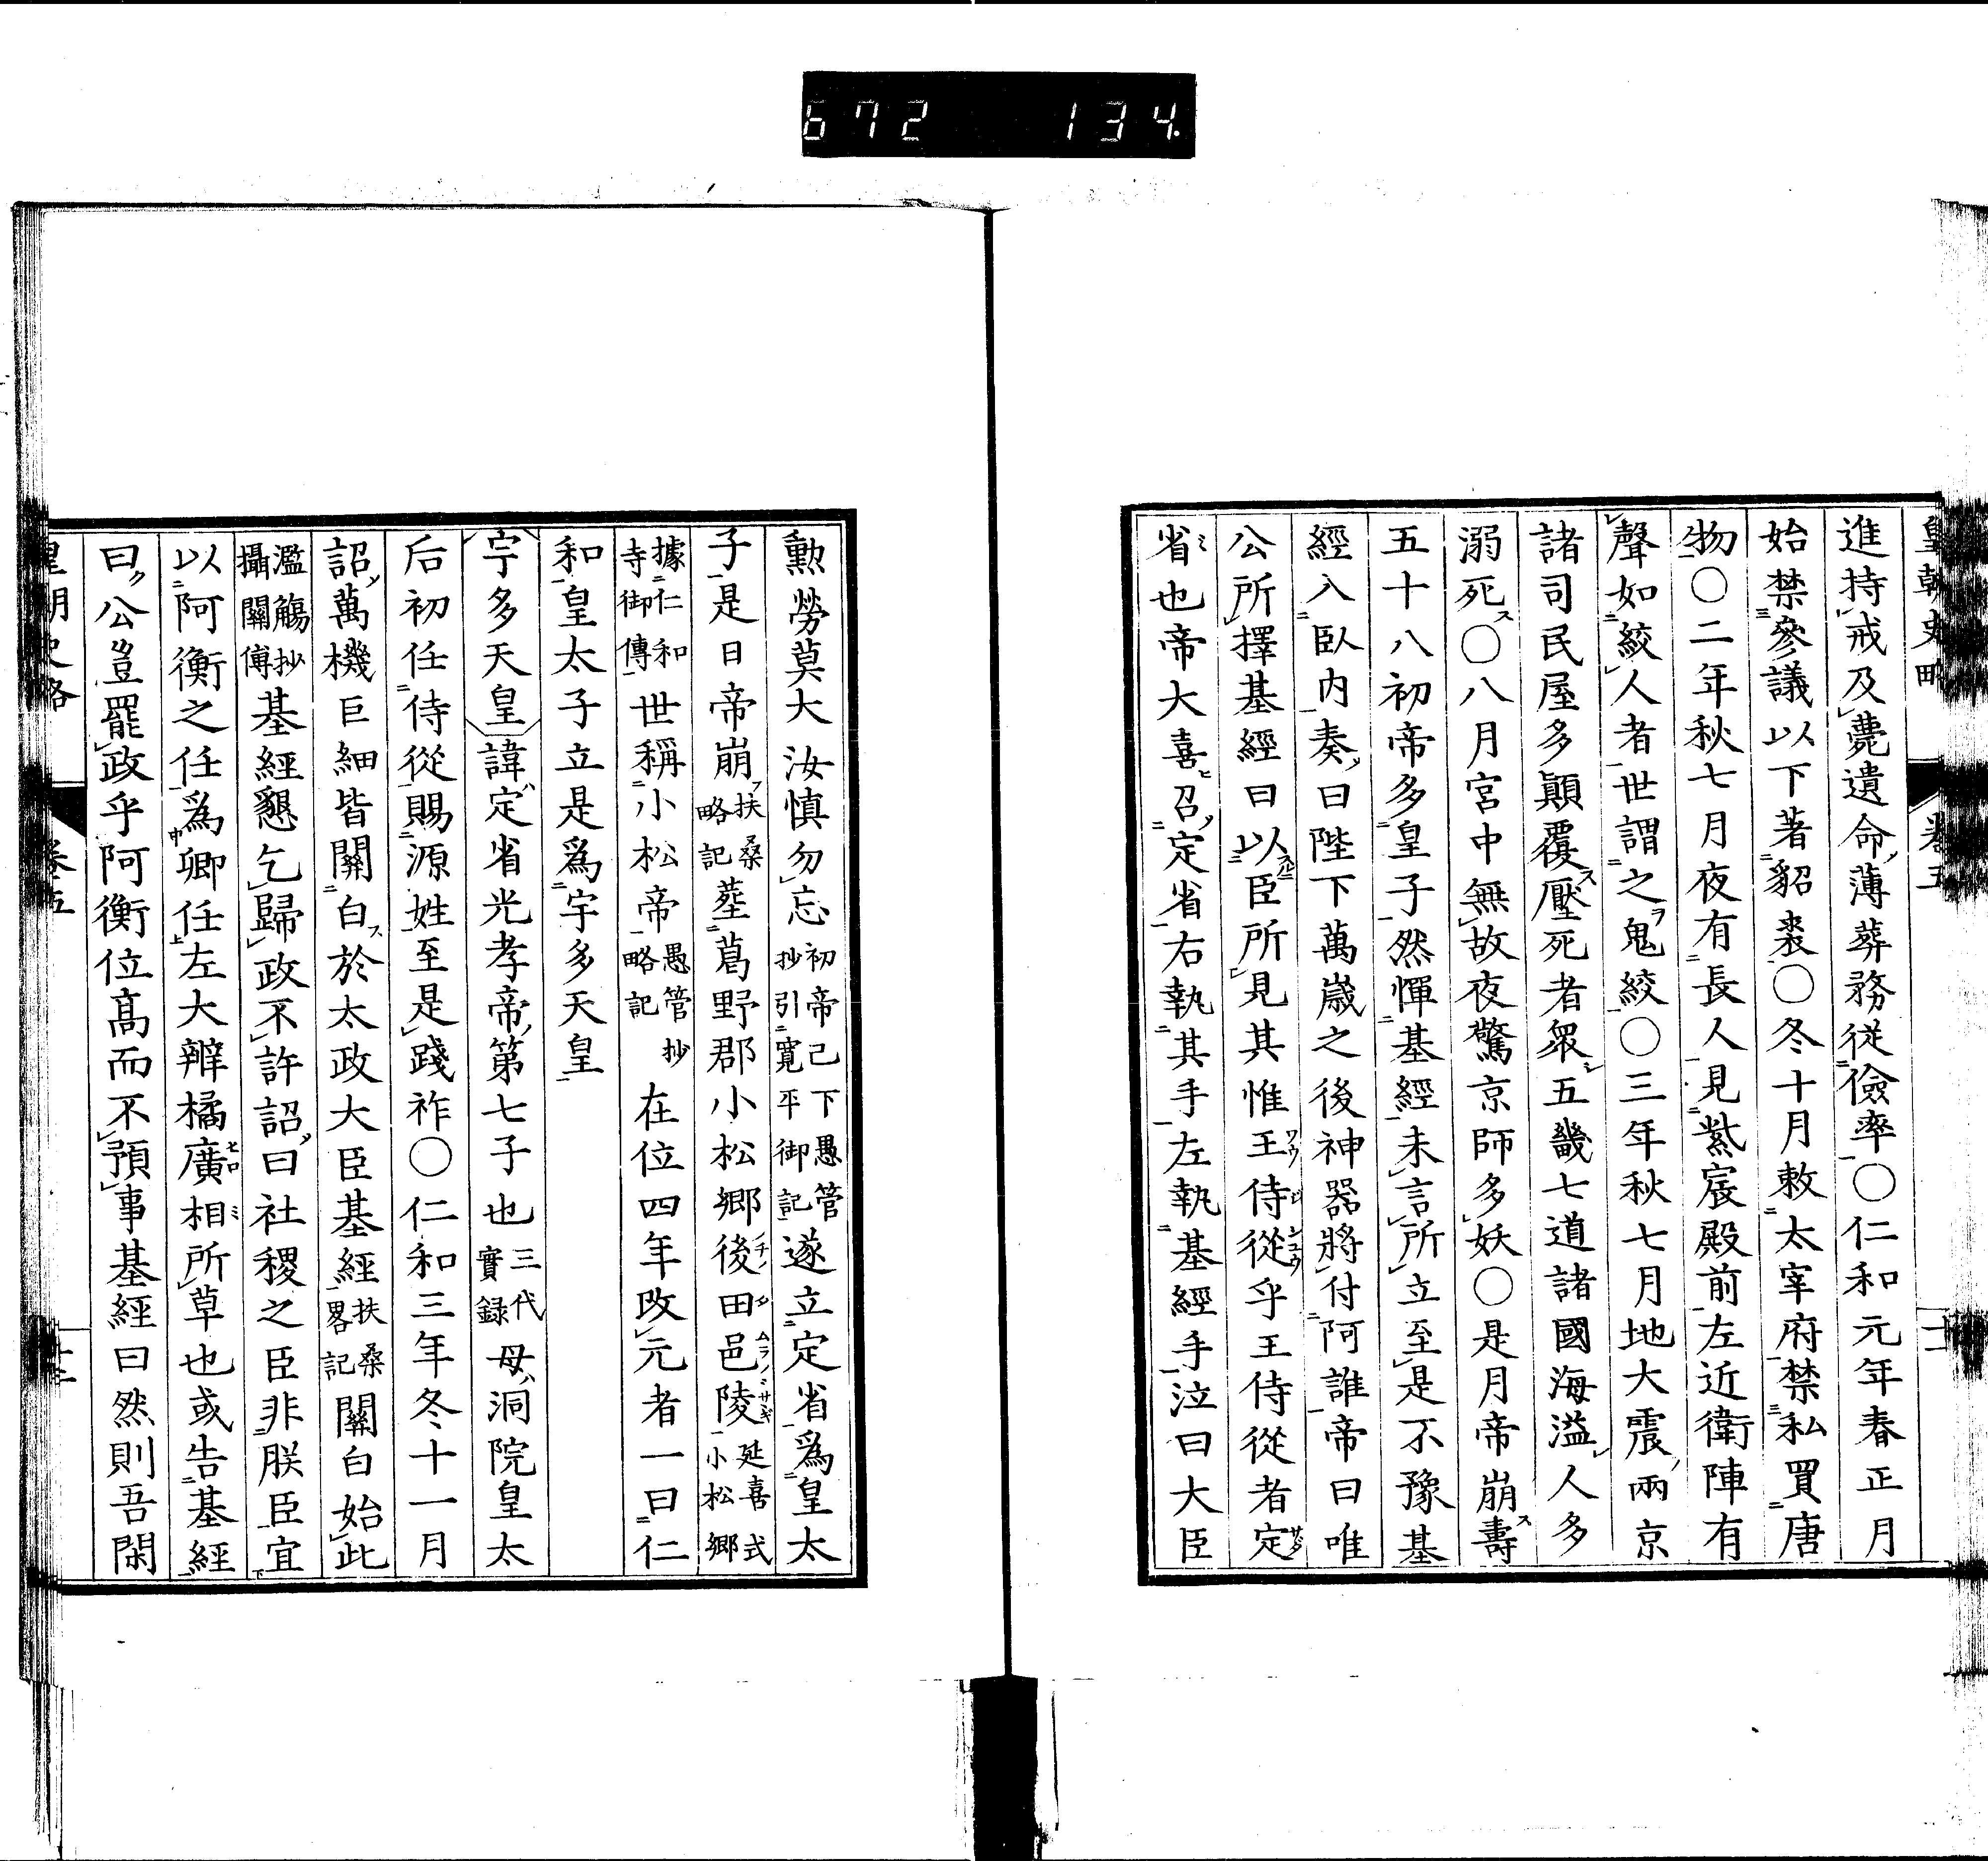 672 134.
皇朝史略 卷五 十二
進持戒及薨遺命薄葬務從儉率〇仁和元年春正月
始禁參議以下著貂裘〇冬十月敕太宰府禁私買唐
物〇二年秋七月夜有長人見紫宸殿前左近衛陣有
聲如絞人者世謂之鬼絞〇三年秋七月地大震兩京
諸司民屋多顚覆壓死者衆五畿七道諸國海溢人多
溺死〇八月宮中無故夜驚京師多妖〇是月帝崩壽
五十八初帝多皇子然憚基經未言所立至是不豫基
經入臥内奏曰陛下萬歲之後神器將付阿誰帝曰唯
公所擇基經曰以臣所見其惟王侍從乎王侍從者定
省也帝大喜召定省右執其手左執基經手泣曰大臣
勳勞莫大汝愼勿忘初帝已下愚管抄引寬平御記遂立定省爲皇太
子是日帝崩扶桑略記葬葛野郡小松鄉後田邑陵延喜式小松鄉
據仁和寺御傳世稱小松帝愚管抄略記在位四年改元者一曰仁
和皇太子立是爲宇多天皇
宇多天皇諱定省光孝帝第七子也三代實錄母洞院皇太
后初任侍從賜源姓至是踐祚〇仁和三年冬十一月
詔萬機巨細皆關白於太政大臣基經扶桑畧記關白始此
濫觴抄攝關傳基經懇乞歸政不許詔曰社稷之臣非朕臣宜
以阿衡之任爲卿任左大辨橘廣相所草也或告基經
曰公豈罷政乎阿衡位高而不預事基經曰然則吾閑
皇朝史略 卷五 十二